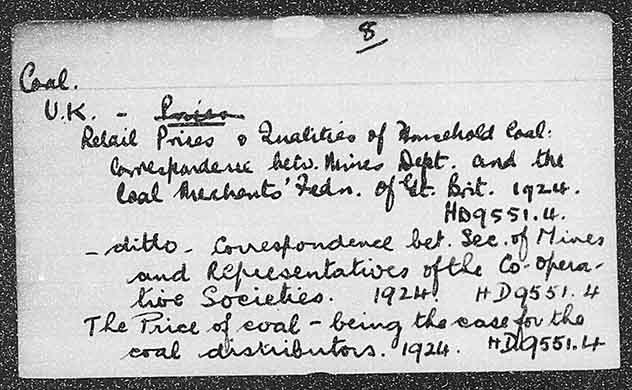 8
Coal.
U.K. - Prices
Retail Prices & Qualities of Household Coal:
Correspondence betw. Mines Dept. and the
Coal Merchants' Fedn. of Gt. Brit. 1924.
HD9551.4.
- ditto - Correspondence bet. Sec. of Mines
and Representatives of the Co-opera-
tive Societies. 1924. HD9551.4
The Price of coal - being the case for the
coal distributors. 1924. HD9551.4